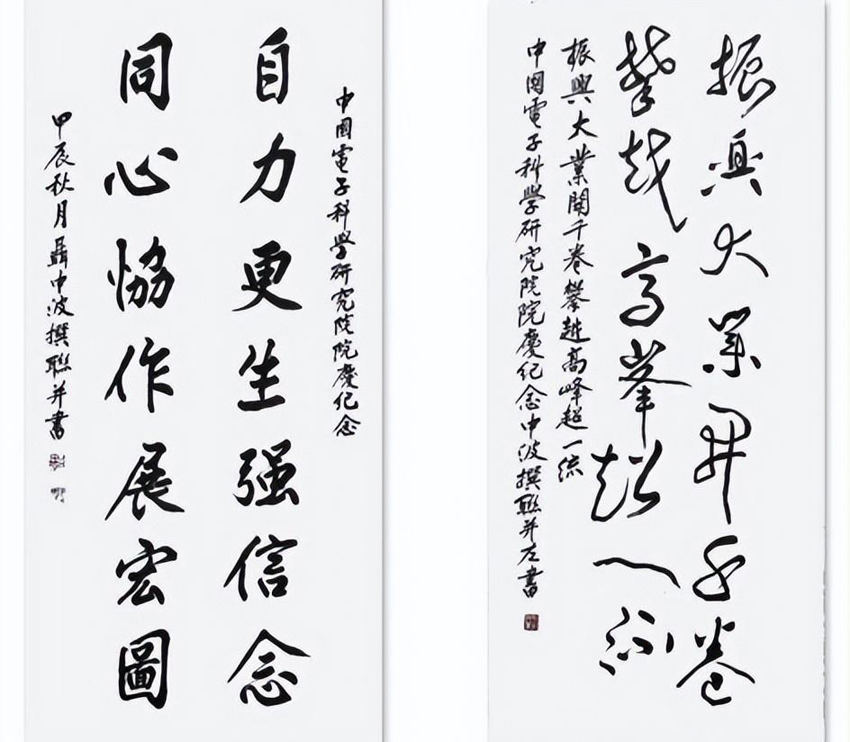 中國電子科學研究院院慶纪念
自力更生强信念
同心協作展宏圖
甲辰秋月聶中波撰聯并書
振興大業開千卷
攀越高峰超一流
振興大業開千卷攀越高峰超一流
中國電子科學研究院院慶纪念中波撰聯并左書